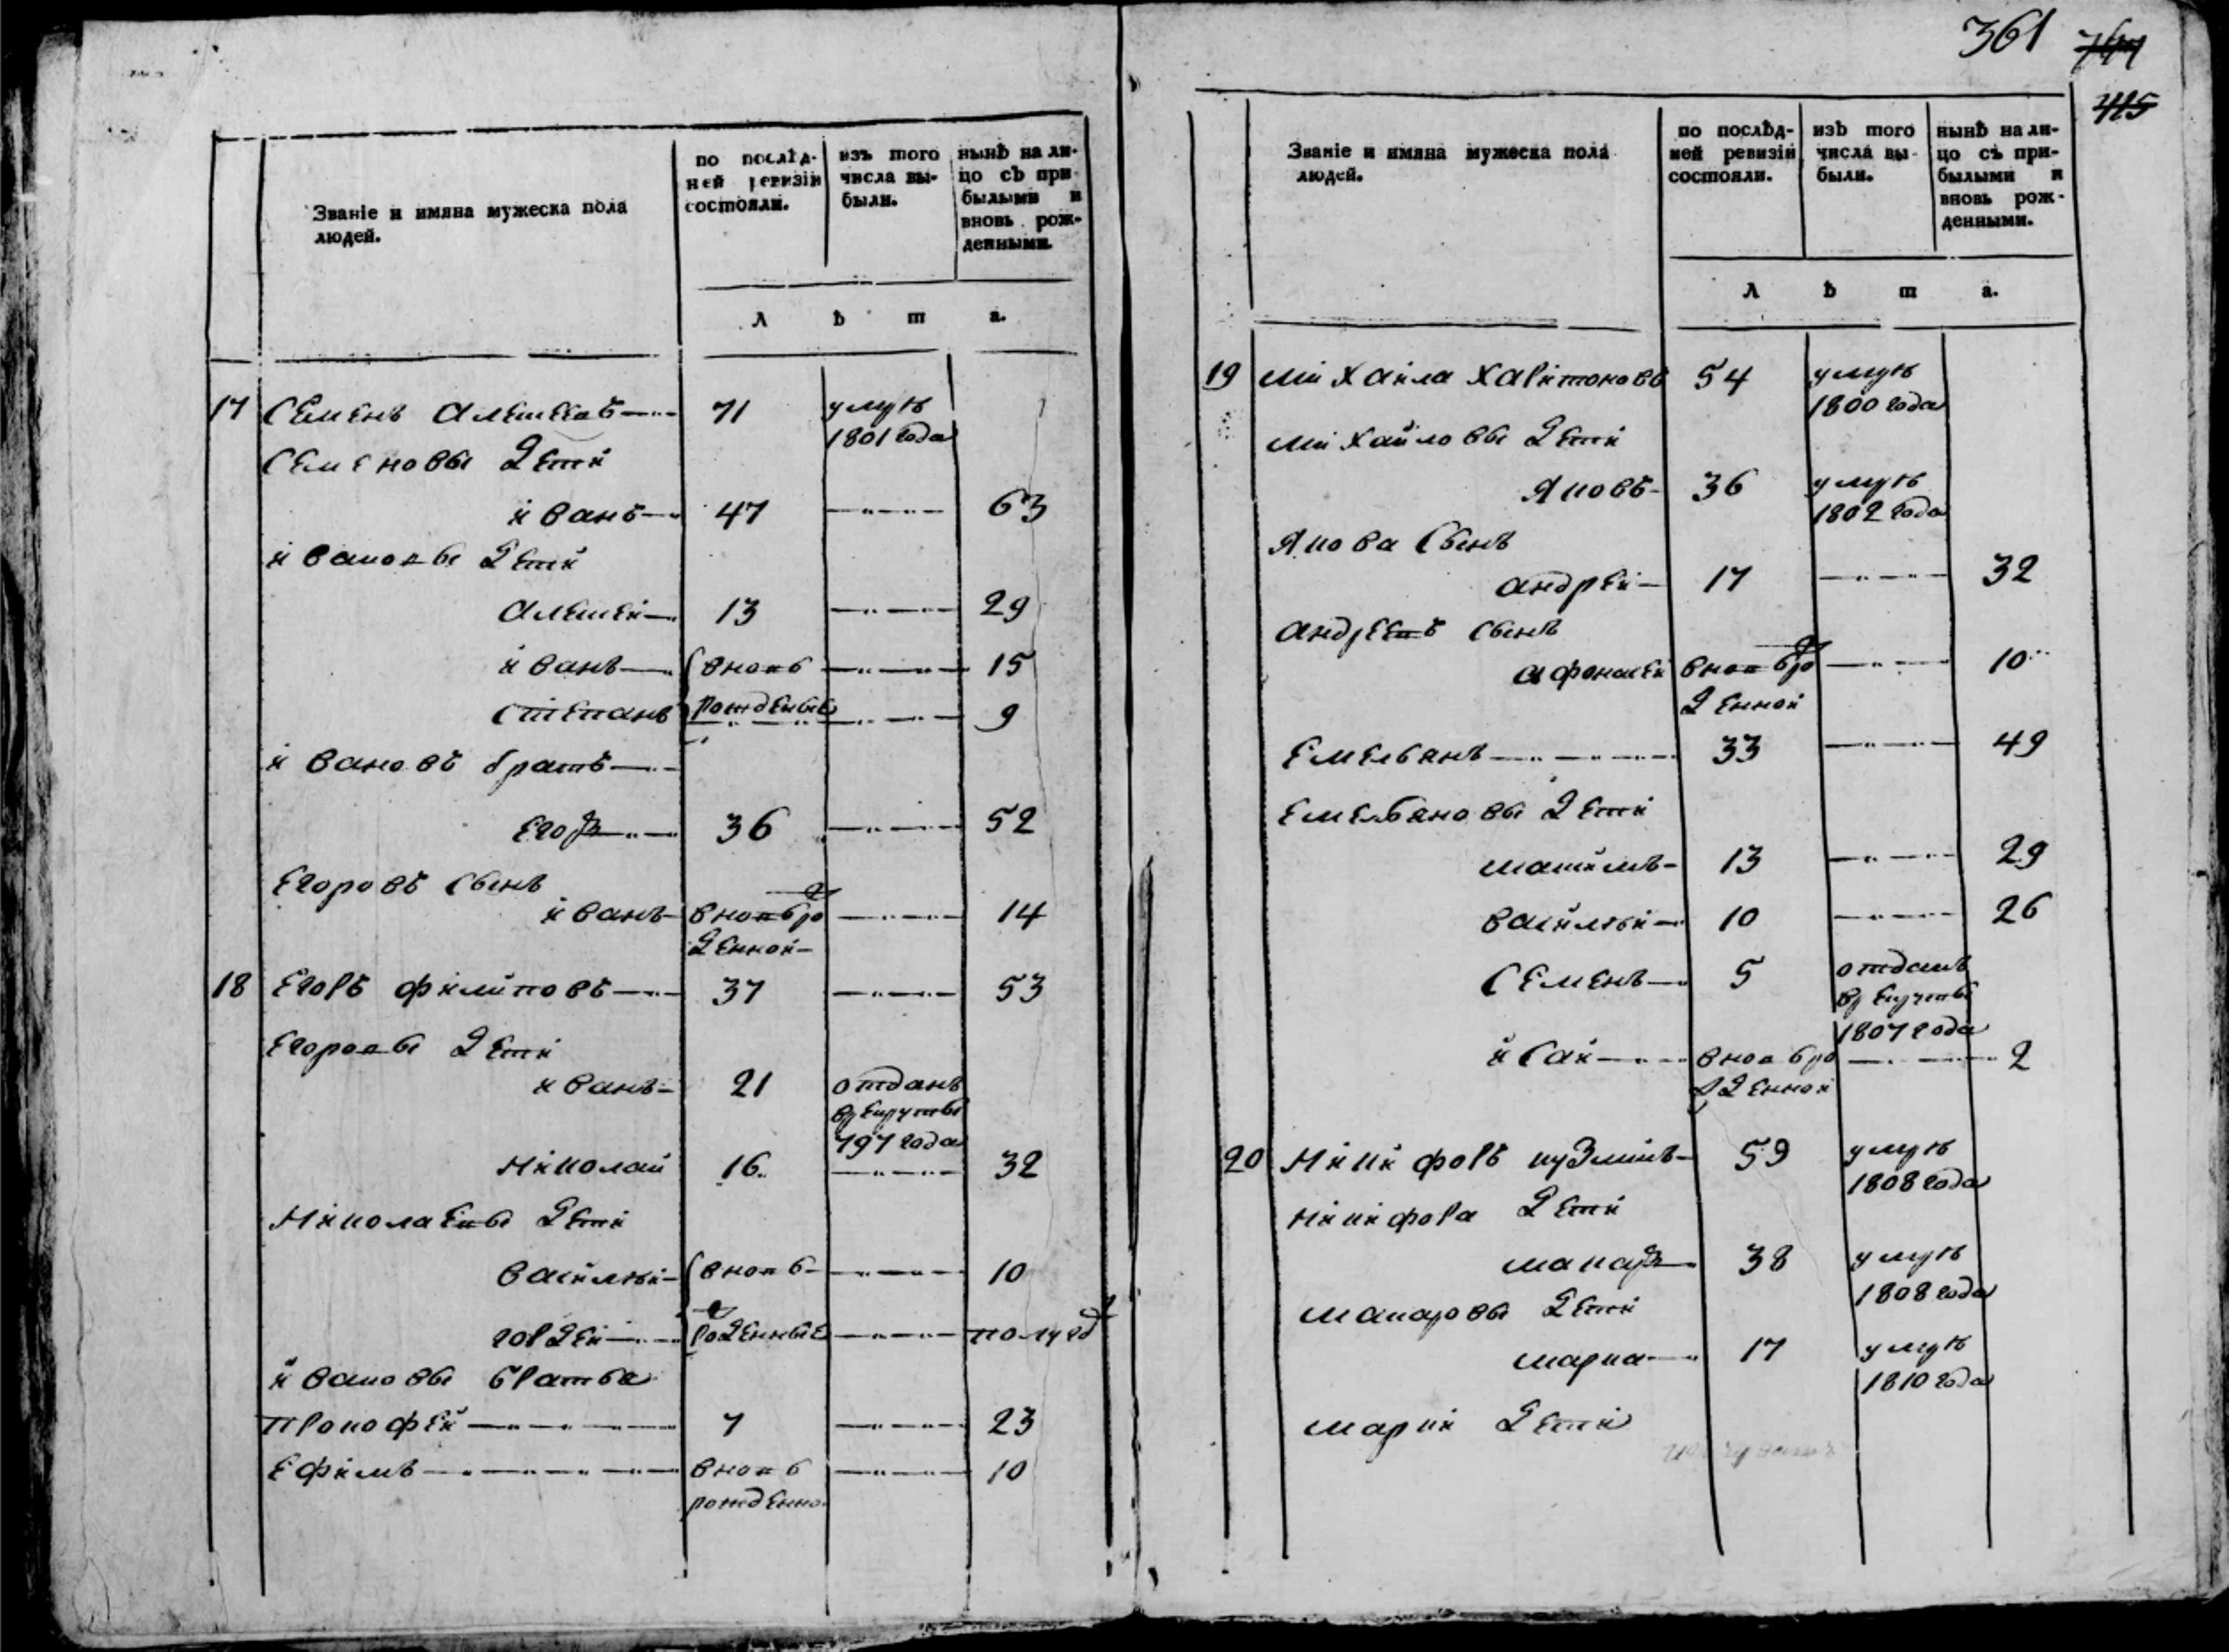 Званіе и имяна мужеска пола
людей.
по послѣд-
ней ревизіи
состояли.
изъ того
числа вы-
были.
нынѣ на ли-
цо съ при-
былыми и
вновь рож-
денными.
л ѣ т а.
17 Семенъ Алексеевъ 71 умре
1801 года
Семеновы дети
иванъ 47 63
ивановы дети
Алексеи 13 29
иванъ вновь 15
Степанъ рожденые 9
ивановъ братъ
Егоръ 36 52
Егоровъ сынъ
иванъ вновь рож 14
денной
18 Егоръ филиповъ 37 53
Егоровы дети
иванъ 21 отданъ
в рекруты
797 года
Николай 16 32
Николаевы дети
васились вновь 10
гордеи рожденные полугод
ивановы братья
прокофей 7 23
Ефимъ вновь 10
рожденно
361
744
415
Званіе и имяна мужеска пола
людей.
по послѣд-
ней ревизіи
состояли.
изъ того
числа вы-
были.
нынѣ на ли-
цо съ при-
былыми и
вновь рож-
денными.
л ѣ т а.
19 михаила харитоновъ 54 умре
1800 года
михайловы дети
Яковъ 36 умре
1802 года
Якова сынъ
андреи 17 32
андреевъ сынъ
афонасеи вновь рож 10
денной
Емельянъ 33 49
Емельяновы дети
максимъ 13 29
василеи 10 26
Семенъ 5 отданъ
в рекруты
1807 года
исаи вновь рож 2
денной
20 Никифоръ кузминъ 59 умре
1808 года
никифора дети
макаръ 38 умре
1808 года
макаровы дети
марка 17 умре
1810 года
марки дети